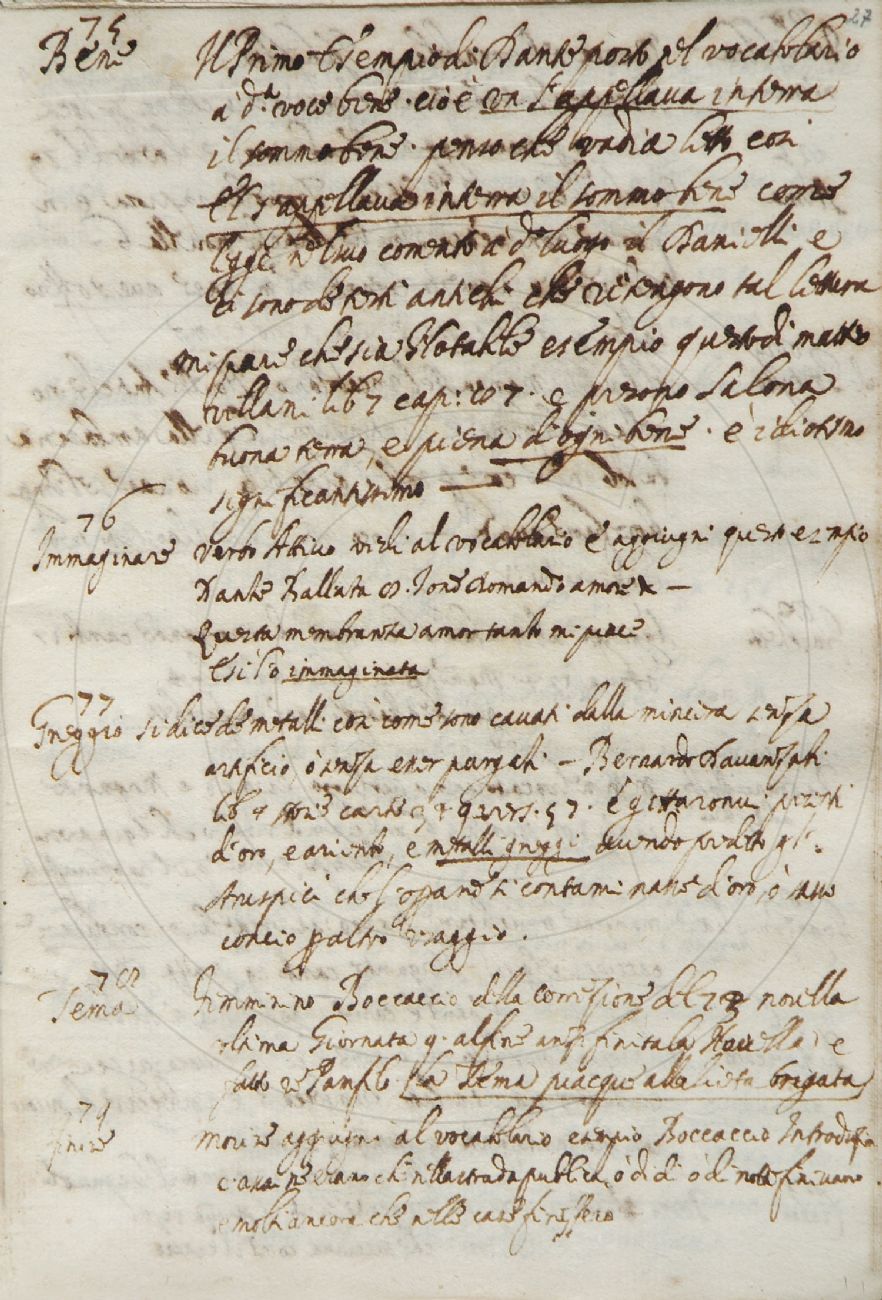 27
75
Bene Il Primo Esempio di Dante posto nel vocabolario
a d.ª voce bene. cioè un s'appellava in terra
il sommo bene. penso che vadia letto così
Et s'appellava in terra il sommo bene come
legge nel suo comento a d.º luogo il Danielli e
ci sono de testi antichi che ritengono tal lettera
mi pare che sia Notabile esempio questo di Matteo
villani lib 7 cap: 107. e presono Salona
buona terra, e piena di ogni bene. è idiotismo
significantissimo
76
Immaginare verbo Attivo vedi al vocabolario e aggiugni questo esempio
Dante Ballata 8. Io non domando amore
Questa membranza amor tanto mi piace
E sì l'ò immaginata
77
Greggio si dice de metalli così come sono cavati dalla miniera senza
artificio ò senza esser purgati - Bernardo Davanzati
lib 4 storie carte vers. 57. e gittaronvi pezzi
d'oro, e ariento, e metalli greggi avendo predetto gl'
Aruspici che l'opra non si contaminasse d'oro, ò sasso
concio per altro viaggio.
78
Tema Femminino Boccaccio della correzione del 73 novella
ultima Giornata 9. al fine anzi finita la Novella e
fatto re Panfilo. La Tema piacque alla lieta brigata
79
finire morire aggiugni al vocabolario esempio Boccaccio Introduzione
e assai n'erano che nella strada publica, ò di dì ò di notte finivano
e molti ancora che nelle case finissero